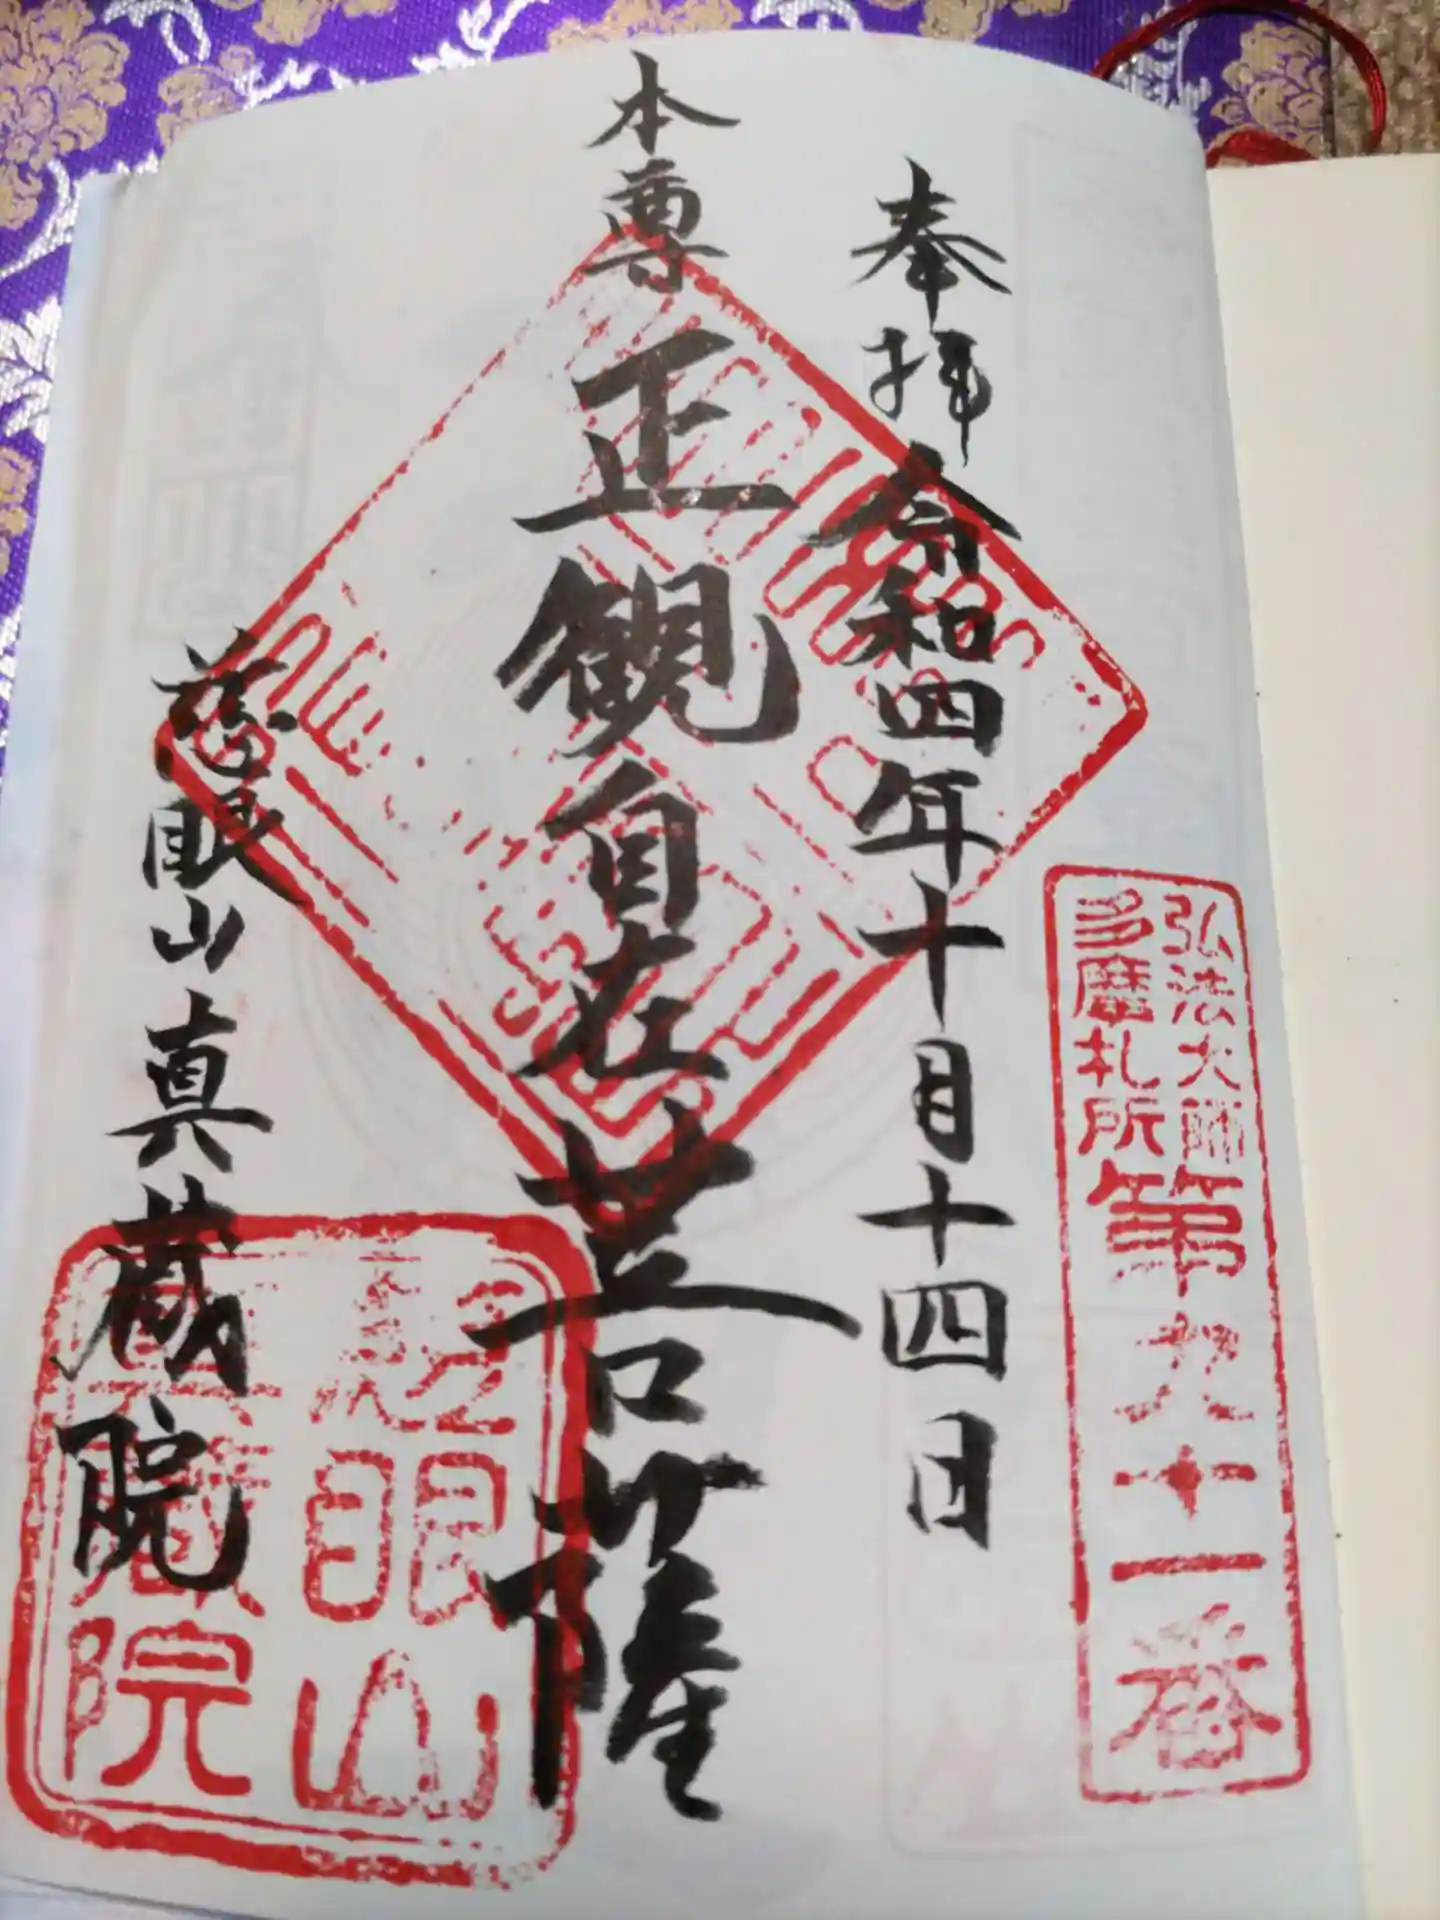 弘法大師
多磨札所
第九十一番
奉拝 令和四年十月十四日
本尊 正観自在菩薩
慈眼山真蔵院
慈眼山
真蔵院